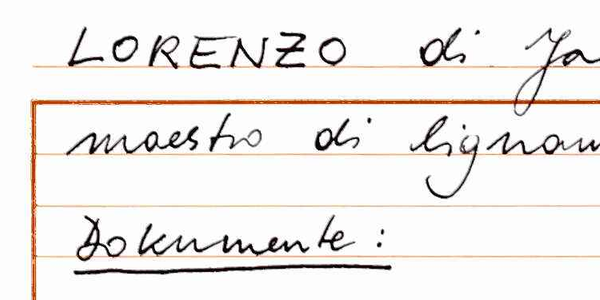 LORENZO di Ja
maestro di lignam
Dokumente: